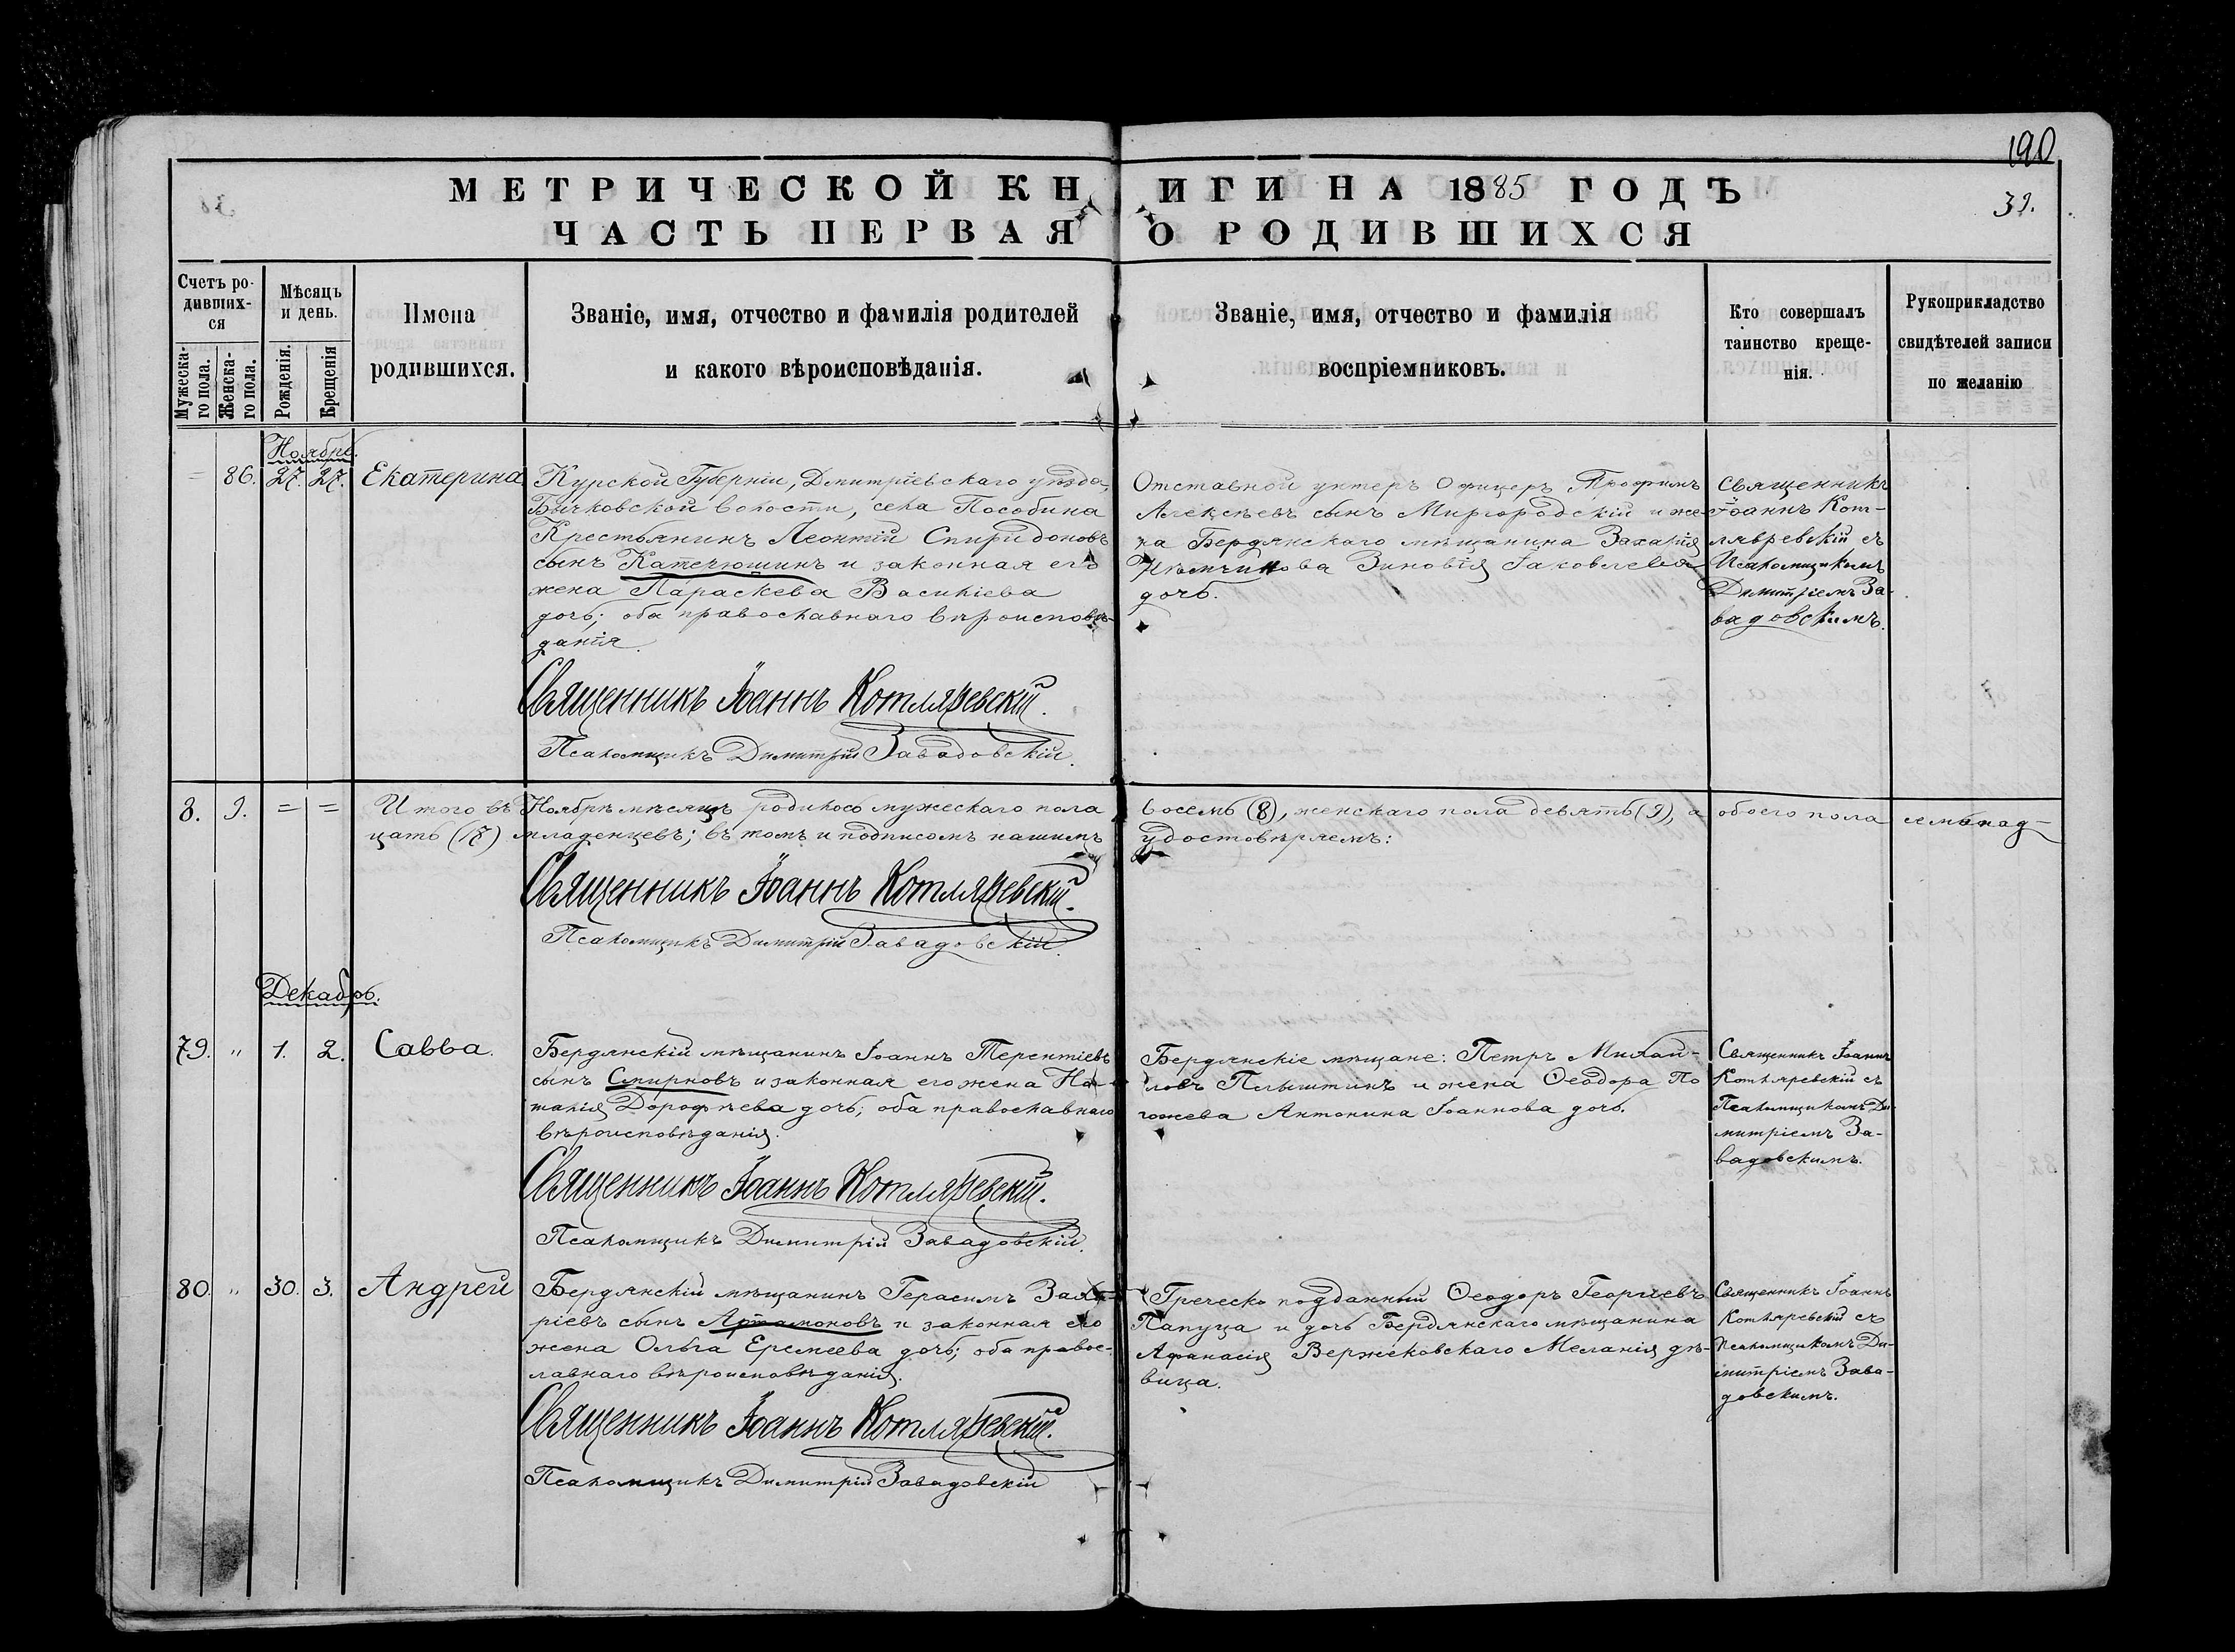 190
МЕТРИЧЕСКОЙ КНИГИ НА 1885 ГОДЪ
39.
ЧАСТЬ ПЕРВАЯ О РОДИВШИХСЯ
Счетъ ро-
дивших-
ся
Мужеска-
го пола.
Женска-
го пола.
Мѣсяцъ
и день.
Рожденія.
Крещенія
Имена
родившихся.
Званіе, имя, отчество и фамилія родителей
и какого вѣроисповѣданія.
Званіе, имя, отчество и фамилія
воспріемниковъ.
Кто совершалъ
таинство креще-
нія.
Рукоприкладство
свидѣтелей записи
по желанію
Ноябрь.
86. 27. 27. Екатерина
Курской Губерніи, Димитріевскаго уѣзда,
Бычковской волости, села Пособина
Крестьянинъ Леонтій Спиридоновъ
сынъ Катерюшинъ и законная его
жена Параскева Василіева
дочь; оба православнаго вѣроисповѣ-
данія.
Священникъ Іоаннъ Котляревскій.
Псаломщикъ Димитрій Завадовскій.
Отставной унтеръ Офицеръ Трофимъ
Алексѣевъ сынъ Миргородскій и же-
на Бердянскаго мѣщанина Захарія
Нѣмчинова Зиновія Іаковлева
дочь.
Священникъ
Іоаннъ Кот-
ляревскій съ
Псаломщикомъ
Димитріемъ За-
вадовскимъ.
8. 9. = = Итого въ Ноябрѣ мѣсяцѣ родилось мужескаго пола восемь (8), женскаго пола девять (9), а обоего пола семнад-
цать (17) младенцевъ; въ томъ и подписомъ нашимъ удостовѣряемъ:
Священникъ Іоаннъ Котляревскій.
Псаломщикъ Димитрій Завадовскій.
Декабрь.
79. " 1. 2. Савва.
Бердянскій мѣщанинъ Іоаннъ Терентіевъ
сынъ Смирновъ и законная его жена На-
талія Дорофѣева дочь; оба православнаго
вѣроисповѣданія.
Священникъ Іоаннъ Котляревскій.
Псаломщикъ Димитрій Завадовскій.
Бердянскіе мѣщане: Петръ Михай-
ловъ Пелыштинъ и жена Ѳеодора По
гожева Антонина Іоаннова дочь.
Священникъ Іоаннъ
Котляревскій съ
Псаломщикомъ Ди-
митріемъ За-
вадовскимъ.
80. " 30. 3. Андрей
Бердянскій мѣщанинъ Герасимъ Заха-
ріевъ сынъ Артамоновъ и законная его
жена Ольга Еремеева дочь; оба правос-
лавнаго вѣроисповѣданія.
Священникъ Іоаннъ Котляревскій.
Псаломщикъ Димитрій Завадовскій
Греческо подданный Ѳеодоръ Георгіевъ
Папуца и дочь Бердянскаго мѣщанина
Афанасія Вержековскаго Меланія дѣ-
вица.
Священникъ Іоаннъ
Котляревскій съ
Псаломщикомъ Ди-
митріемъ Зава-
довскимъ.